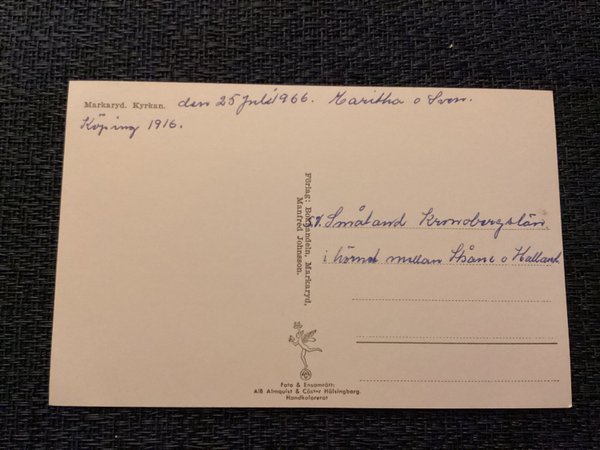 Markaryd. Kyrkan. den 25 Juli 1966. Maritha o Sven.
Köping 1916.
Förlag: Bokhandeln, Markaryd,
Manfred Johnsson.
Småland Kronobergslän,
i hörnet mellan Skåne o Halland
Foto & Ensamrätt:
A/B Almquist & Cöster Hälsingborg.
Handkolorerat